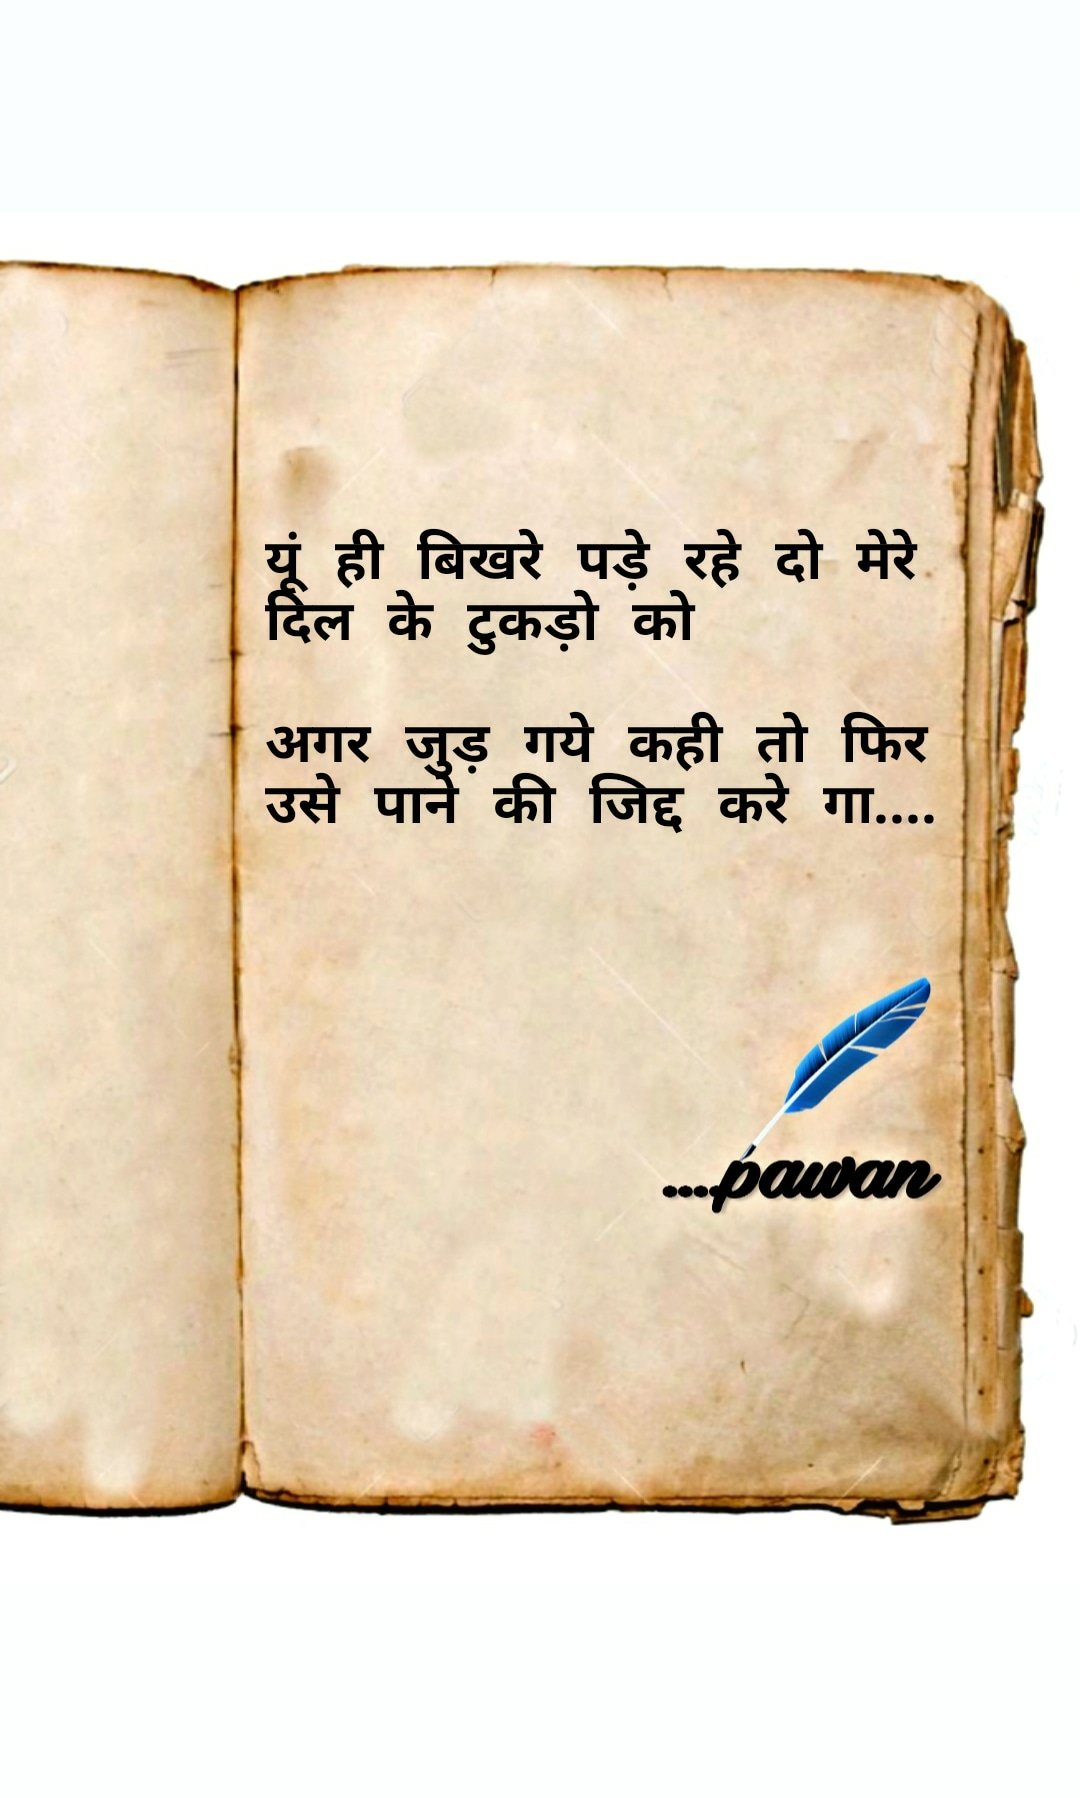 यूं ही बिखरे पड़े रहे दो मेरे
दिल के टुकड़ो को
अगर जुड़ गये कही तो फिर
उसे पाने की जिद्द करे गा....
....pawan